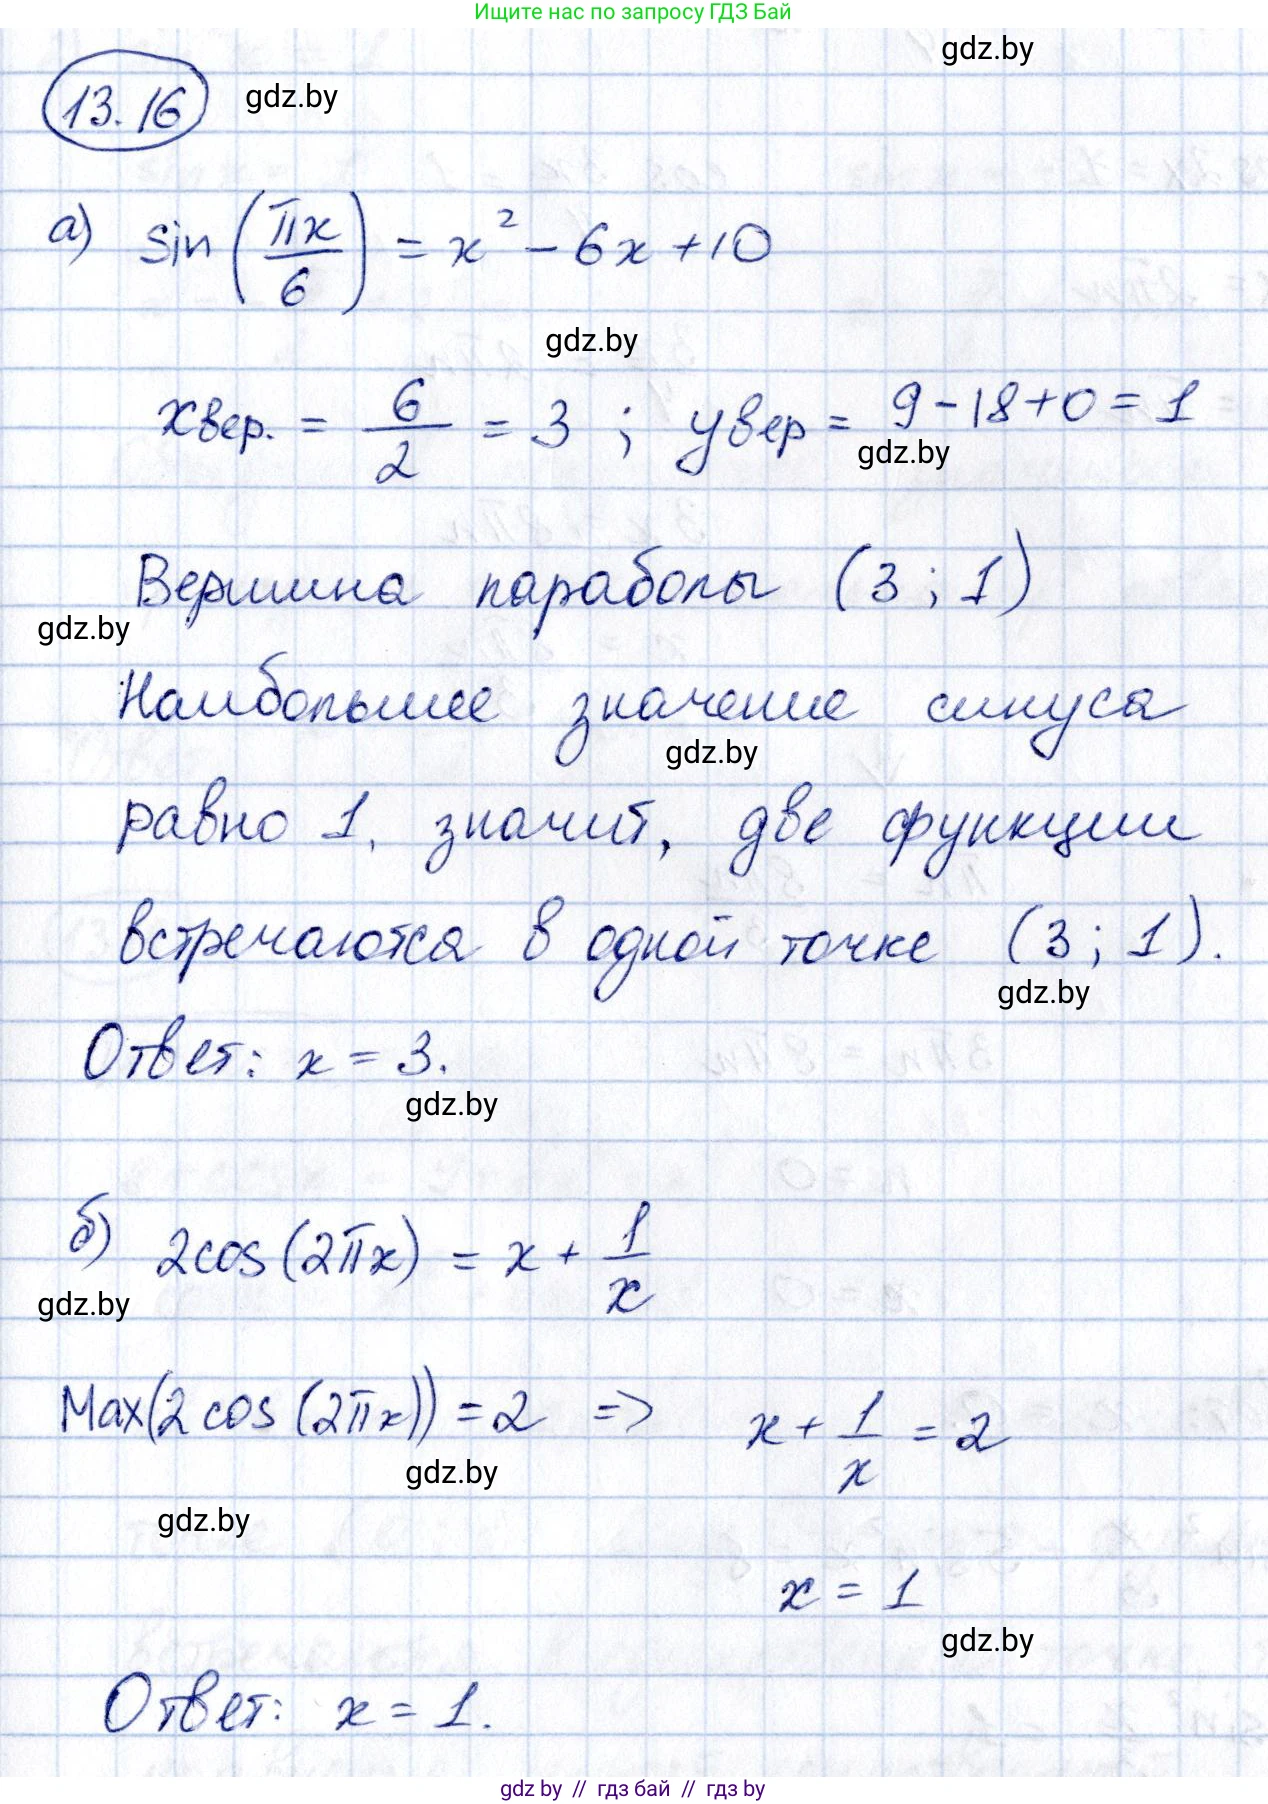 Ищите нас по запросу ГДЗ Бай
gdz.by
13.16 gdz.by
а) sin(πx/6) = x² - 6x + 10
gdz.by
xвер. = 6/2 = 3 ; yвер = 9 - 18 + 0 = 1
gdz.by
Вершина параболы (3 ; 1)
gdz.by
Наибольшее значение синуса
gdz.by
равно 1, значит, две функции
встречаются в одной точке (3 ; 1).
gdz.by
Ответ: x = 3.
gdz.by
б) 2cos(2πx) = x + 1/x
gdz.by
Max(2cos(2πx)) = 2 => x + 1/x = 2
gdz.by
gdz.by
x = 1
gdz.by
Ответ: x = 1.
gdz.by // гдз бай // гдз by